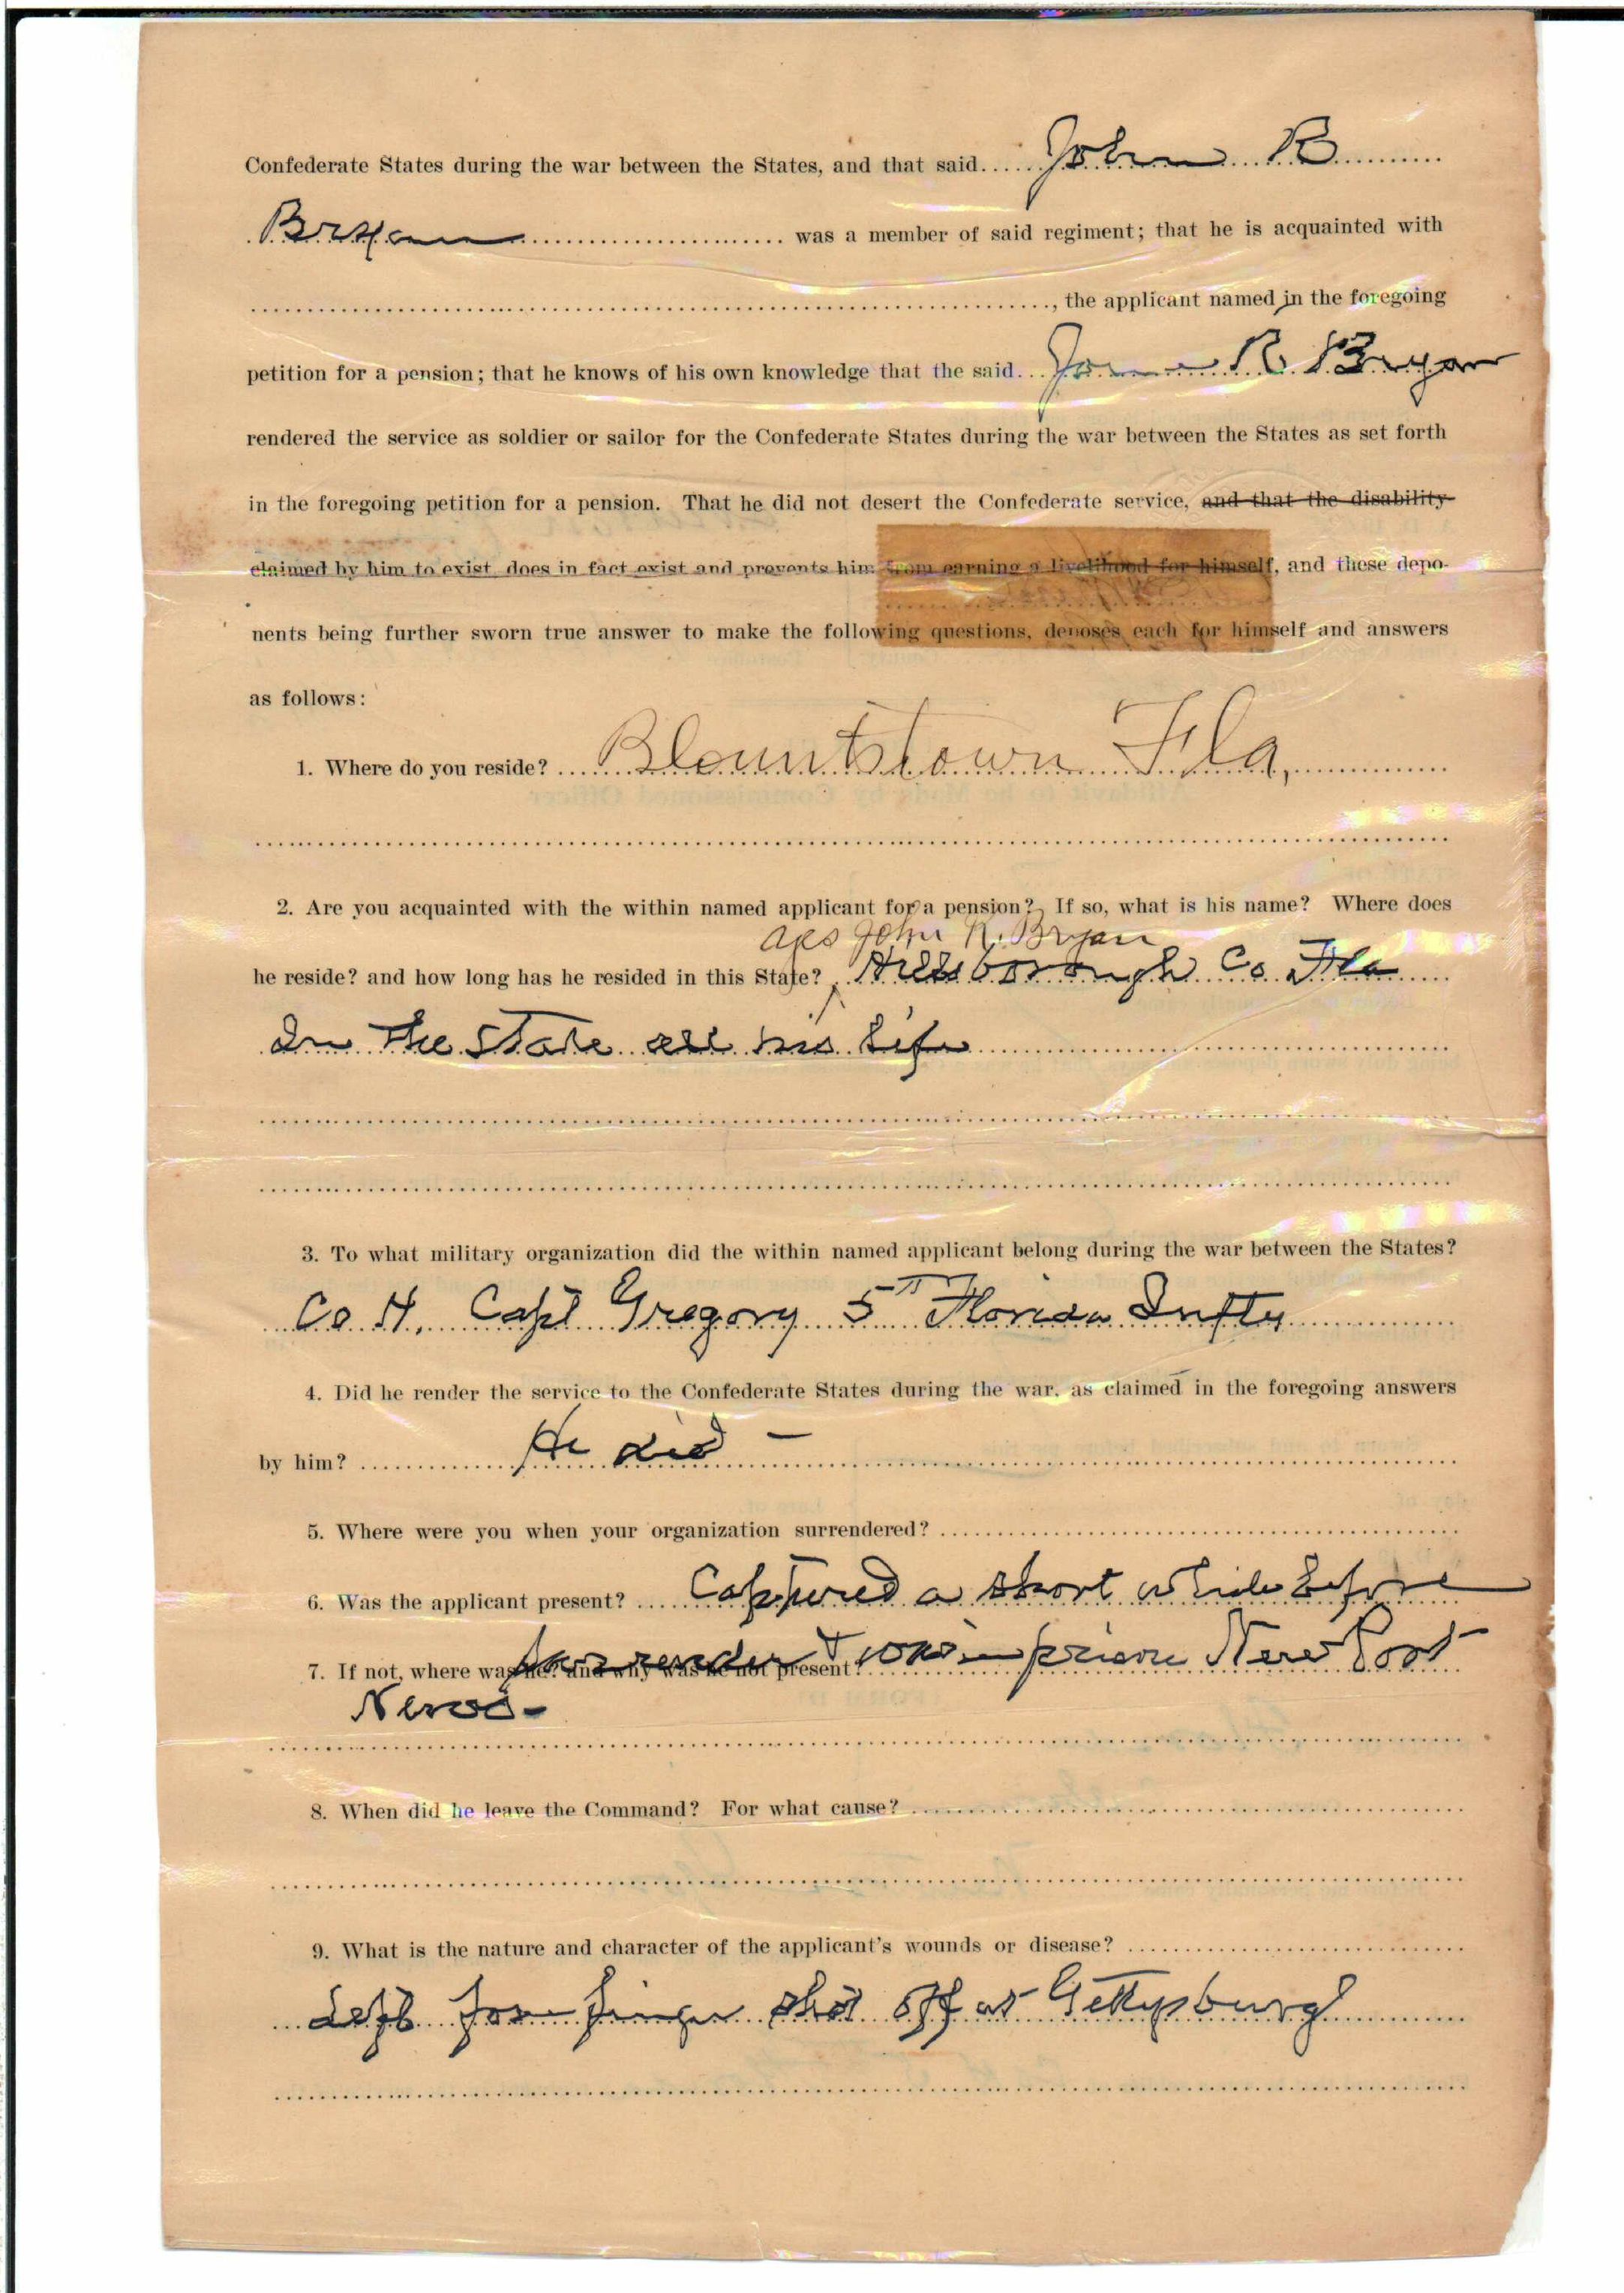 Confederate States during the war between the States, and that said John R
Bryan was a member of said regiment; that he is acquainted with
, the applicant named in the foregoing
petition for a pension; that he knows of his own knowledge that the said R Bryan
rendered the service as soldier or sailor for the Confederate States during the war between the States as set forth
in the foregoing petition for a pension. That he did not desert the Confederate service, and that the disability
claimed by him to exist does in fact exist and prevents him from earning a livelihood for himself, and these depo-
nents being further sworn true answer to make the following questions, deposes each for himself and answers
as follows:
1. Where do you reside? Blountstown Fla,
2. Are you acquainted with the within named applicant for a pension? If so, what is his name? Where does
John R. Bryan
he reside? and how long has he resided in this State? Hillsborough Co Fla
In the State all his life
3. To what military organization did the within named applicant belong during the war between the States?
Co H, Capt Gregory 5th Florida Infty
4. Did he render the service to the Confederate States during the war, as claimed in the foregoing answers
by him? He did -
5. Where were you when your organization surrendered?
6. Was the applicant present? Captured a short while before
surrender & was in prison New Port
7. If not, where was he? and why was he not present?
News-
8. When did he leave the Command? For what cause?
9. What is the nature and character of the applicant's wounds or disease?
Left fore finger shot off at Gettysburg